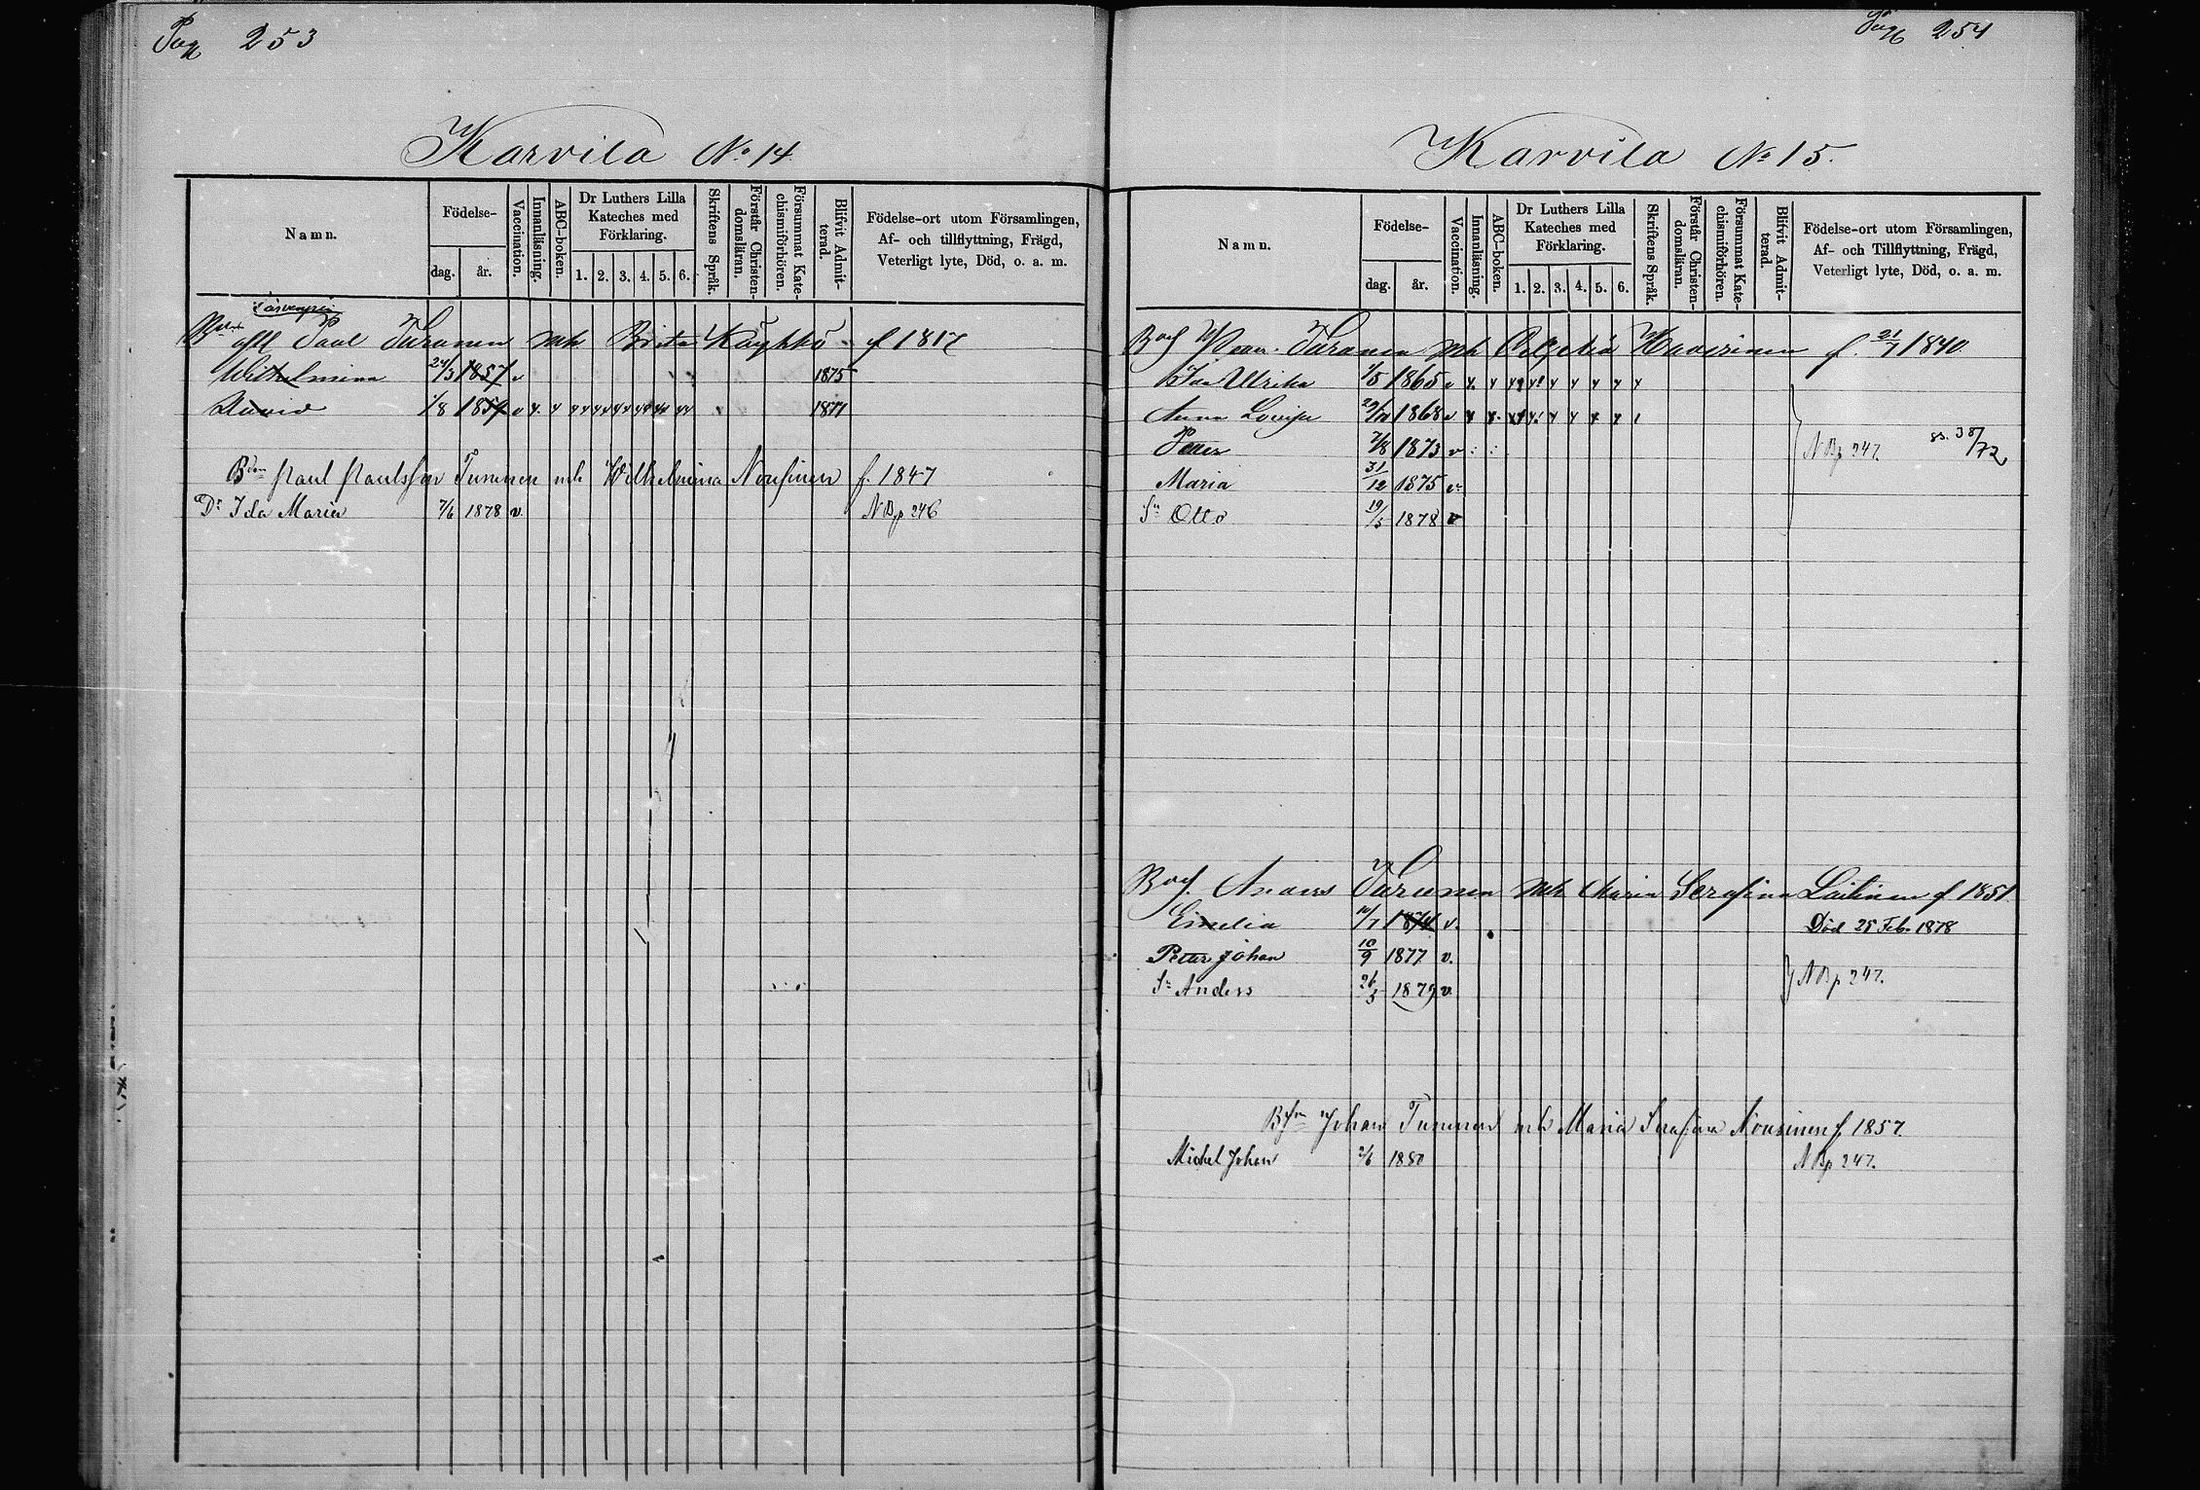 Pag 253
Karvila No 14
Namn.
Födelse-
dag.
år.
Vaccination.
Innanläsning.
ABC-boken.
Dr Luthers Lilla
Kateches med
Förklaring.
1. 2. 3. 4. 5. 6.
Skriftens Språk.
Förstår Christen-
domsläran.
Försummat Kate-
chismiförhören.
Blifvit Admit-
terad.
Födelse-ort utom Församlingen,
Af- och tillflyttning, Frägd,
Veterligt lyte, Död, o. a. m.
Paul Turunen mh Brita Käyhkö f 1817
Wilhelmina 24/3 1857 v 1875
David 1/8 1859 v 1877
Bdn Paul Paulsson Turunen mh Wilhelmina Nousinen f. 1847
Dr Ida Maria 7/6 1878 v. NBp 246
Pag 254
Karvila No 15.
Namn.
Födelse-
dag.
år.
Vaccination.
Innanläsning.
ABC-boken.
Dr Luthers Lilla
Kateches med
Förklaring.
1. 2. 3. 4. 5. 6.
Skriftens Språk.
Förstår Christen-
domsläran.
Försummat Kate-
chismiförhören.
Blifvit Admit-
terad.
Födelse-ort utom Församlingen,
Af- och Tillflyttning, Frägd,
Veterligt lyte, Död, o. a. m.
Turunen mh Haverinen f. 21/7 1840
Ida Ulrika 1/5 1865 v
Anna Lovisa 1868 v
Petter 7/8 1873 v NBp 247. 38/72
Maria 31/12 1875 v.
Sn Otto 19/5 1878 v
Anders Turunen mh Maria Serafina Laitinen f 1851
Emelia 1874 v. Död 25 Feb. 1878
Petter Johan 10/9 1877 v.
Sn Anders 26/3 1879 v. NBp 247.
Johan Turunen mh Maria Serafina Nousinen f. 1857.
Michel Johan 2/6 1880 NBp 247.